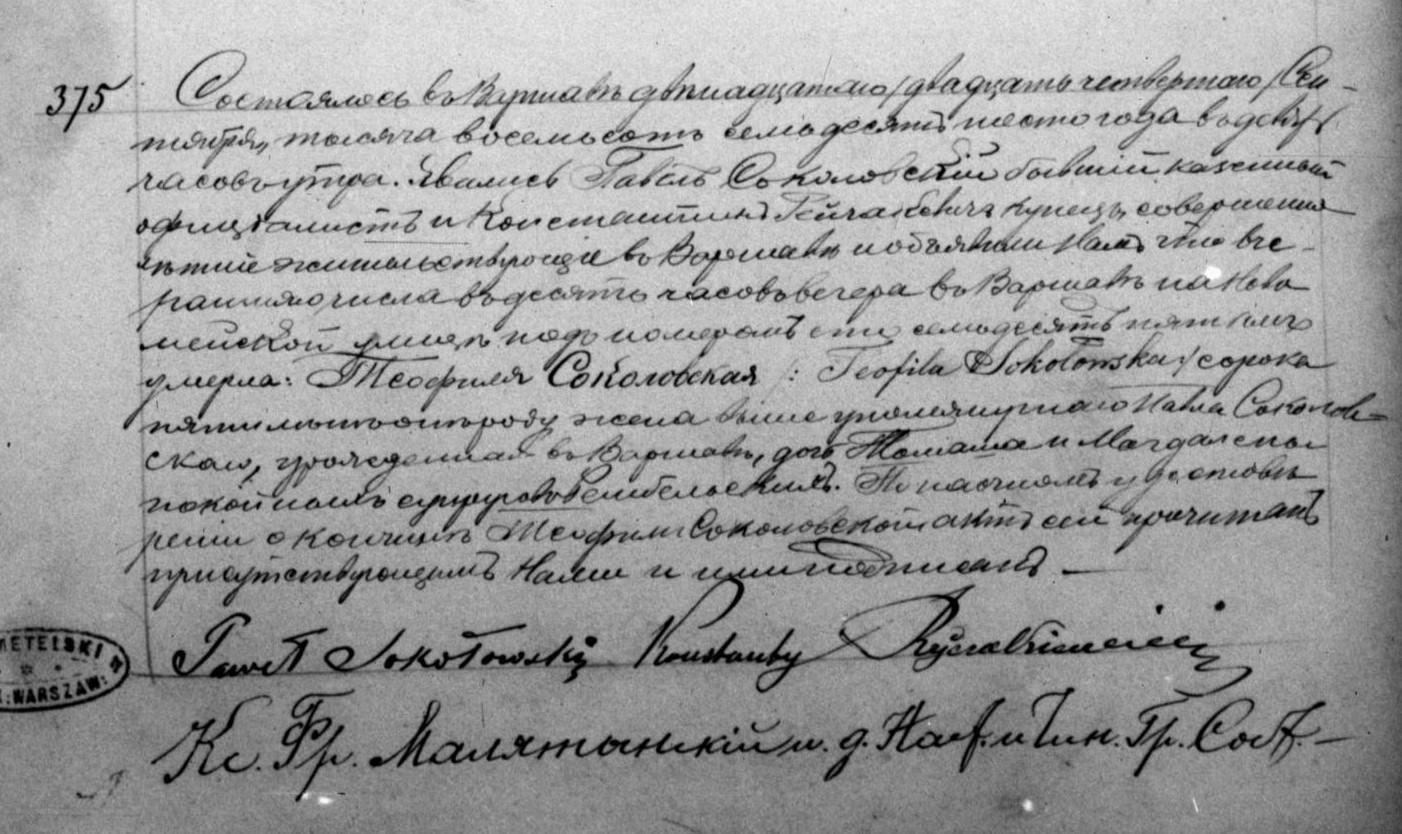 375 Состоялось въ Варшавѣ двѣнадцатаго /двадцать четвертаго/ Сен-
тября, тысяча восемьсотъ семьдесятъ шестого года въ девять
часовъ утра. Явились Павелъ Соколовскій бывшій казенный
официалистъ и Константинъ купецъ, совершенно
лѣтніе жительствующіе въ Варшавѣ и объявили Намъ что вче-
рашняго числа въ десять часовъ вечера въ Варшавѣ на Ново
мейской улицѣ подъ номеромъ сто семьдесятъ пятымъ
умерла: Теофиля Соколовская /: Teofila Sokołowska :/ сорока
пяти лѣтъ отъ роду жена выше упомянутаго Павла Соколов-
скаго, урожденная въ Варшавѣ, дочь Томаша и Магдалены
покойныхъ супруговъ. По настномъ удостовѣ
реніи о кончинѣ Теофили Соколовской актъ сей прочитанъ
присутствующимъ Нами и ими подписанъ. —
Paweł Sokołowski Konstanty
Кс. Фр. Малятынскій и. д. Наст. и Чин. Гр. Сост. —
METELSKI
WARSZAW: